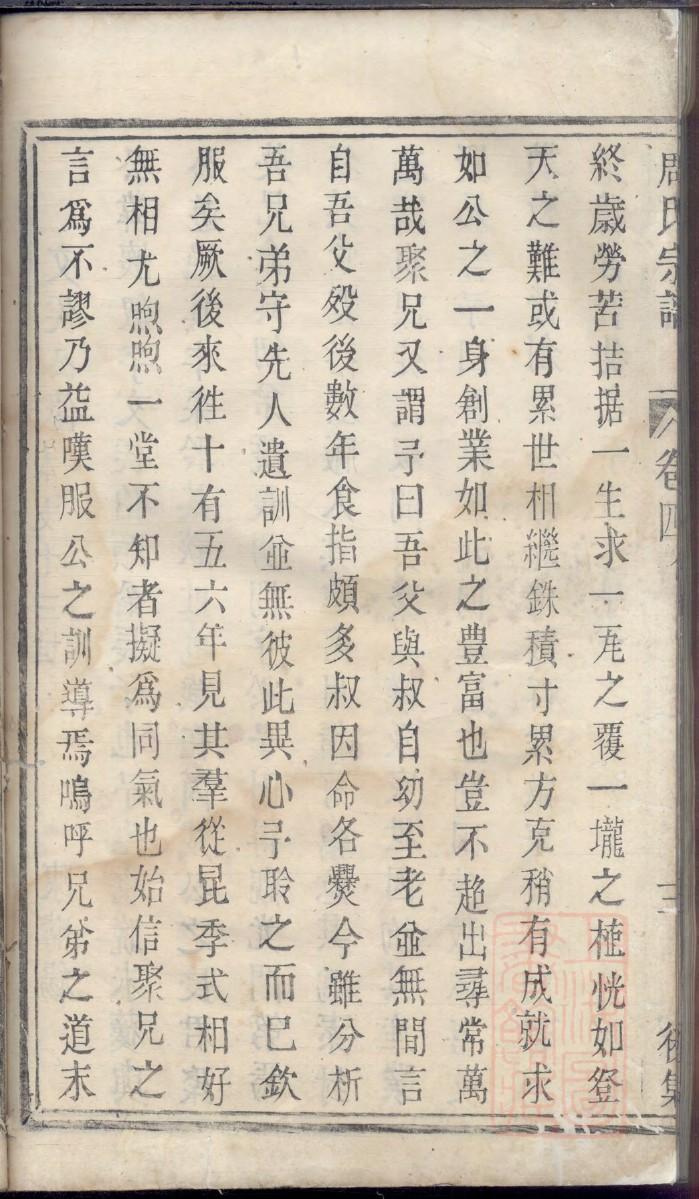 周氏宗譜 卷四 三 後集
終歲勞苦拮据一生求一瓦之覆一壠之植恍如登
天之難或有累世相繼銖積寸累方克稍有成就求
如公之一身創業如此之豊富也豈不超出尋常萬
萬哉聚兄又謂予曰吾父與叔自幼至老並無間言
自吾父歿後數年食指頗多叔因命各爨今雖分析
吾兄弟守先人遺訓並無彼此異心予聆之而已欽
服矣厥後來徃十有五六年見其羣從昆季式相好
無相尤煦煦一堂不知者擬爲同氣也始信聚兄之
言爲不謬乃益嘆服公之訓導焉嗚呼兄弟之道末